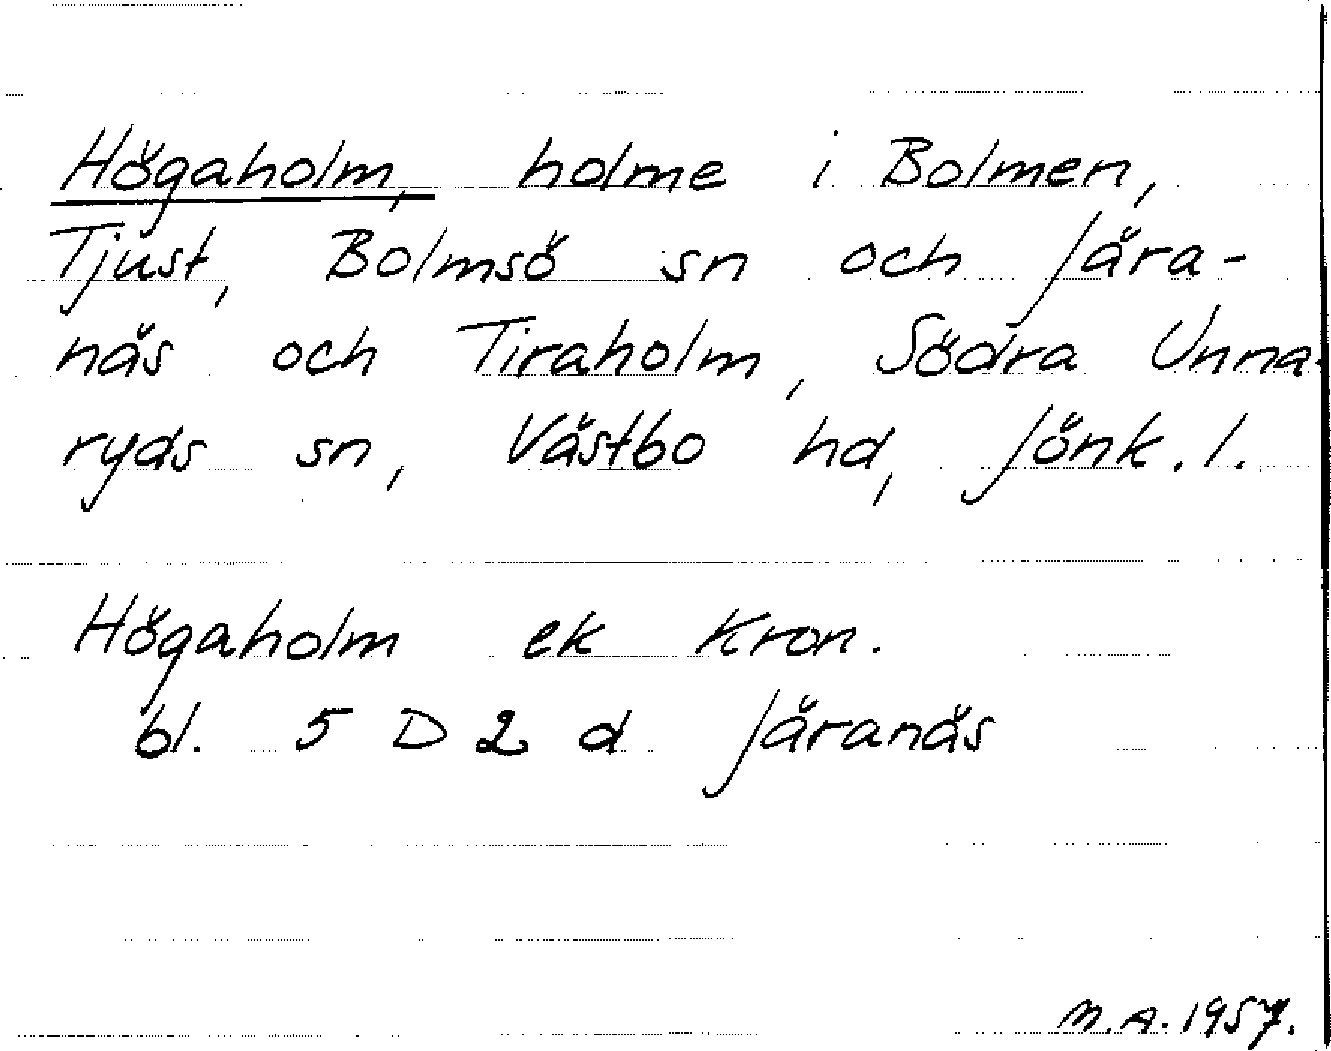 Högaholm, holme i Bolmen,
Tjust, Bolmsö sn och Jära-
näs och Tiraholm, Södra Unna-
ryds sn, Västbo hd, Jönk. l.
Högaholm ek Kron.
bl. 5 D 2 d Järanäs
M.A. 1957.